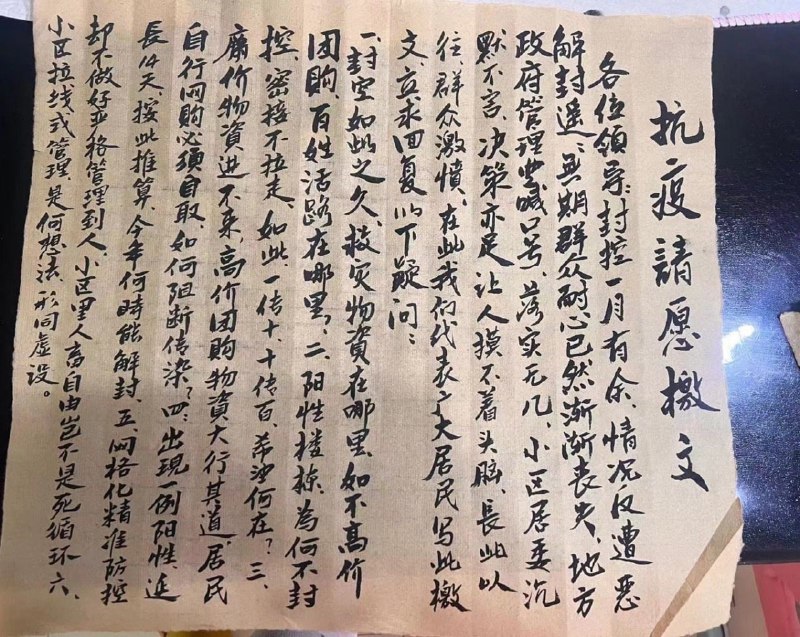 抗疫請愿檄文
各位领导：封控一月有余、情况反遭恶
解封遥遥無期群众耐心已然渐渐丧失、地方
政府管理要喊口号、落实无几、小区居委沉
默不言、决策亦足让人摸不着头脑、長此以
往、群众激愤、在此我们代表广大居民写此檄
文、立求回复以下疑问：
一、封控如此之久、救灾物資在哪里、如不高价
团购、百姓活路在哪里？二、阳性楼栋、為何不封
控、密接不拉走、如此、一传十、十传百、希望何在？三、
廉价物資进不来、高价团购物資大行其道、居民
自行网购必须自取、如何阻断传染？四：出現一例阳性、延
長14天、按此推算、今年何時能解封、五、网格化精准防控
却不做好严格管理到人、小区里人畜自由岂不是死循环六、
小区拉线式管理是何想法、形同虚设。